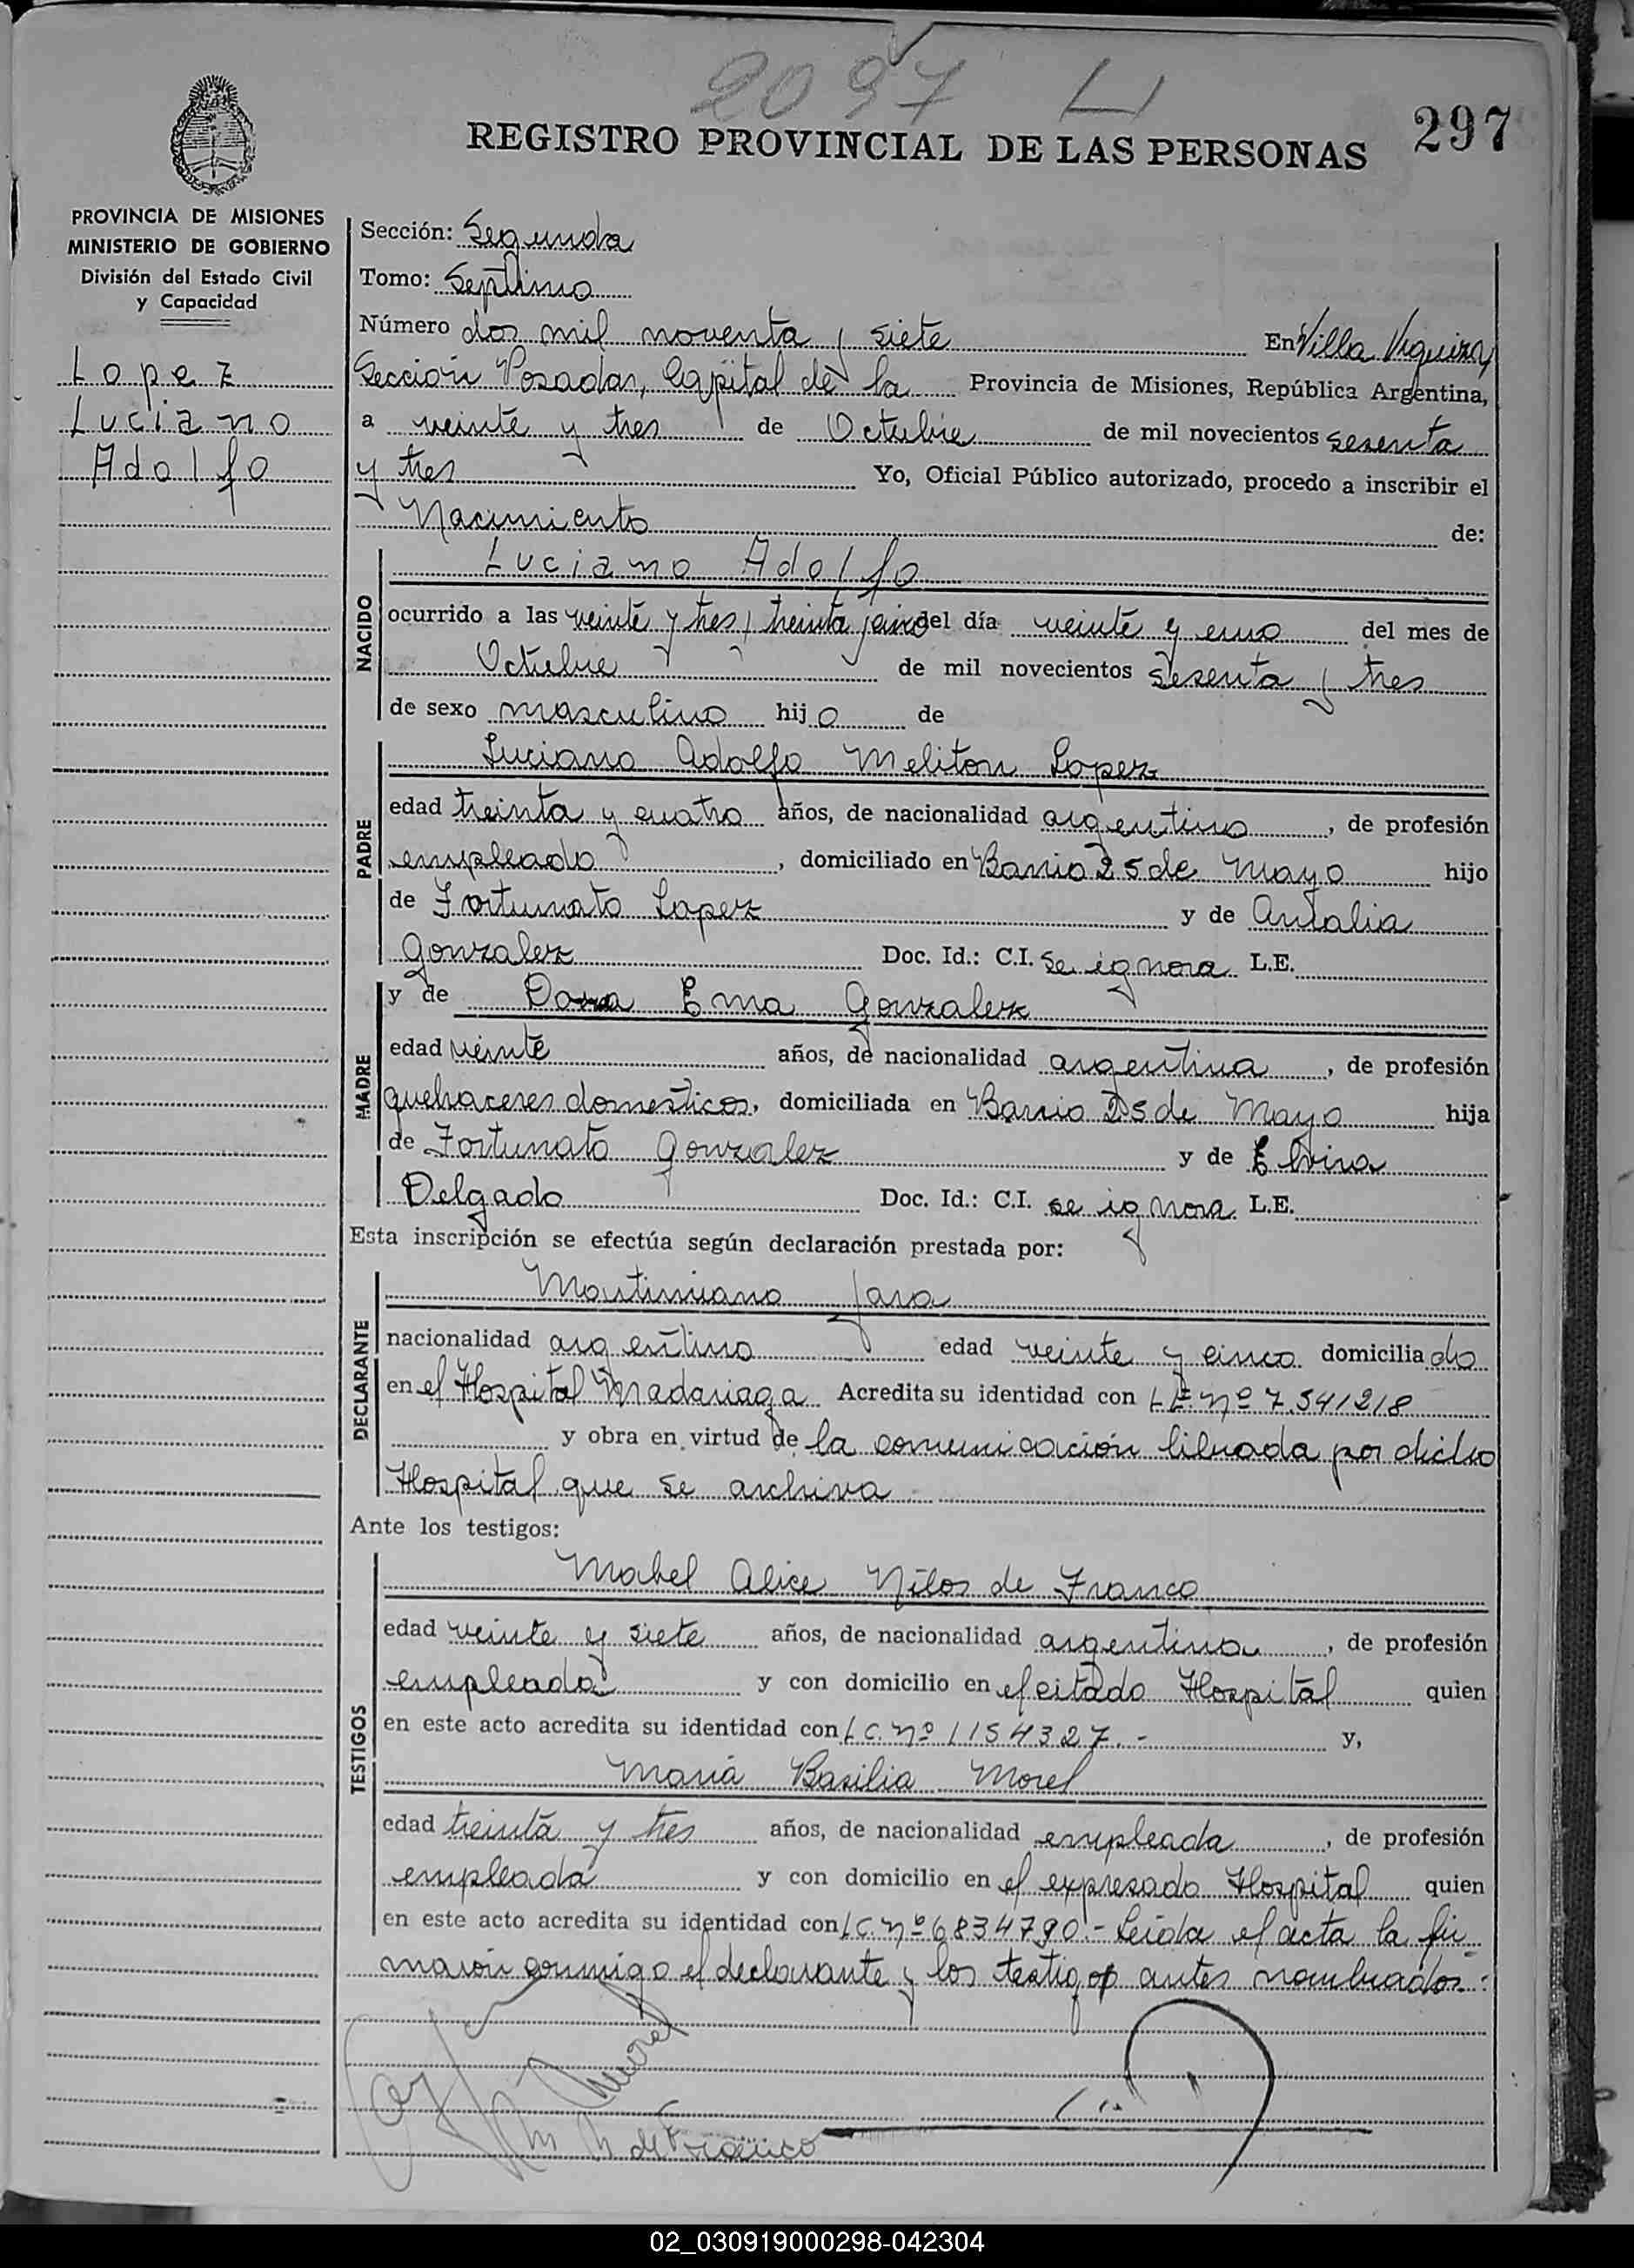 2097 L
297
REGISTRO PROVINCIAL DE LAS PERSONAS
PROVINCIA DE MISIONES
MINISTERIO DE GOBIERNO
División del Estado Civil
y Capacidad
Lopez
Luciano
Adolfo
Sección: Segunda
Tomo: Septimo
Número dos mil noventa y siete En Villa Urquiza,
Sección Posadas, Capital de la Provincia de Misiones, República Argentina,
a veinte y tres de Octubre de mil novecientos sesenta
y tres Yo, Oficial Público autorizado, procedo a inscribir el
Nacimiento de:
NACIDO
Luciano Adolfo
ocurrido a las veinte y tres y treinta del día veinte y uno del mes de
Octubre de mil novecientos sesenta y tres
de sexo masculino hijo de
PADRE
Luciano Adolfo Meliton Lopez
edad treinta y cuatro años, de nacionalidad argentino, de profesión
empleado, domiciliado en Barrio 25 de Mayo hijo
de Fortunato Lopez y de Antalia
Gonzalez Doc. Id.: C.I. se ignora L.E.
MADRE
y de Dora Ema Gonzalez
edad veinte años, de nacionalidad argentina, de profesión
quehaceres domesticos, domiciliada en Barrio 25 de Mayo hija
de Fortunato Gonzalez y de Elvira
Delgado Doc. Id.: C.I. se ignora L.E.
Esta inscripción se efectúa según declaración prestada por:
DECLARANTE
Montiniano Jara
nacionalidad argentino edad veinte y cinco domiciliado
en el Hospital Madariaga Acredita su identidad con L.E. nº 7.541218
y obra en virtud de la comunicación librada por dicho
Hospital que se archiva
Ante los testigos:
TESTIGOS
Mabel Alice Nilos de Franco
edad veinte y siete años, de nacionalidad argentina, de profesión
empleada y con domicilio en el citado Hospital quien
en este acto acredita su identidad con L.C. nº 1154327.- y,
María Basilia Morel
edad treinta y tres años, de nacionalidad empleada, de profesión
empleada y con domicilio en el expresado Hospital quien
en este acto acredita su identidad con L.C. nº 6834790.- Leída el acta la fir
maron conmigo el declarante y los testigos antes nombrados.:
Morel
de Franco
02_030919000298-042304